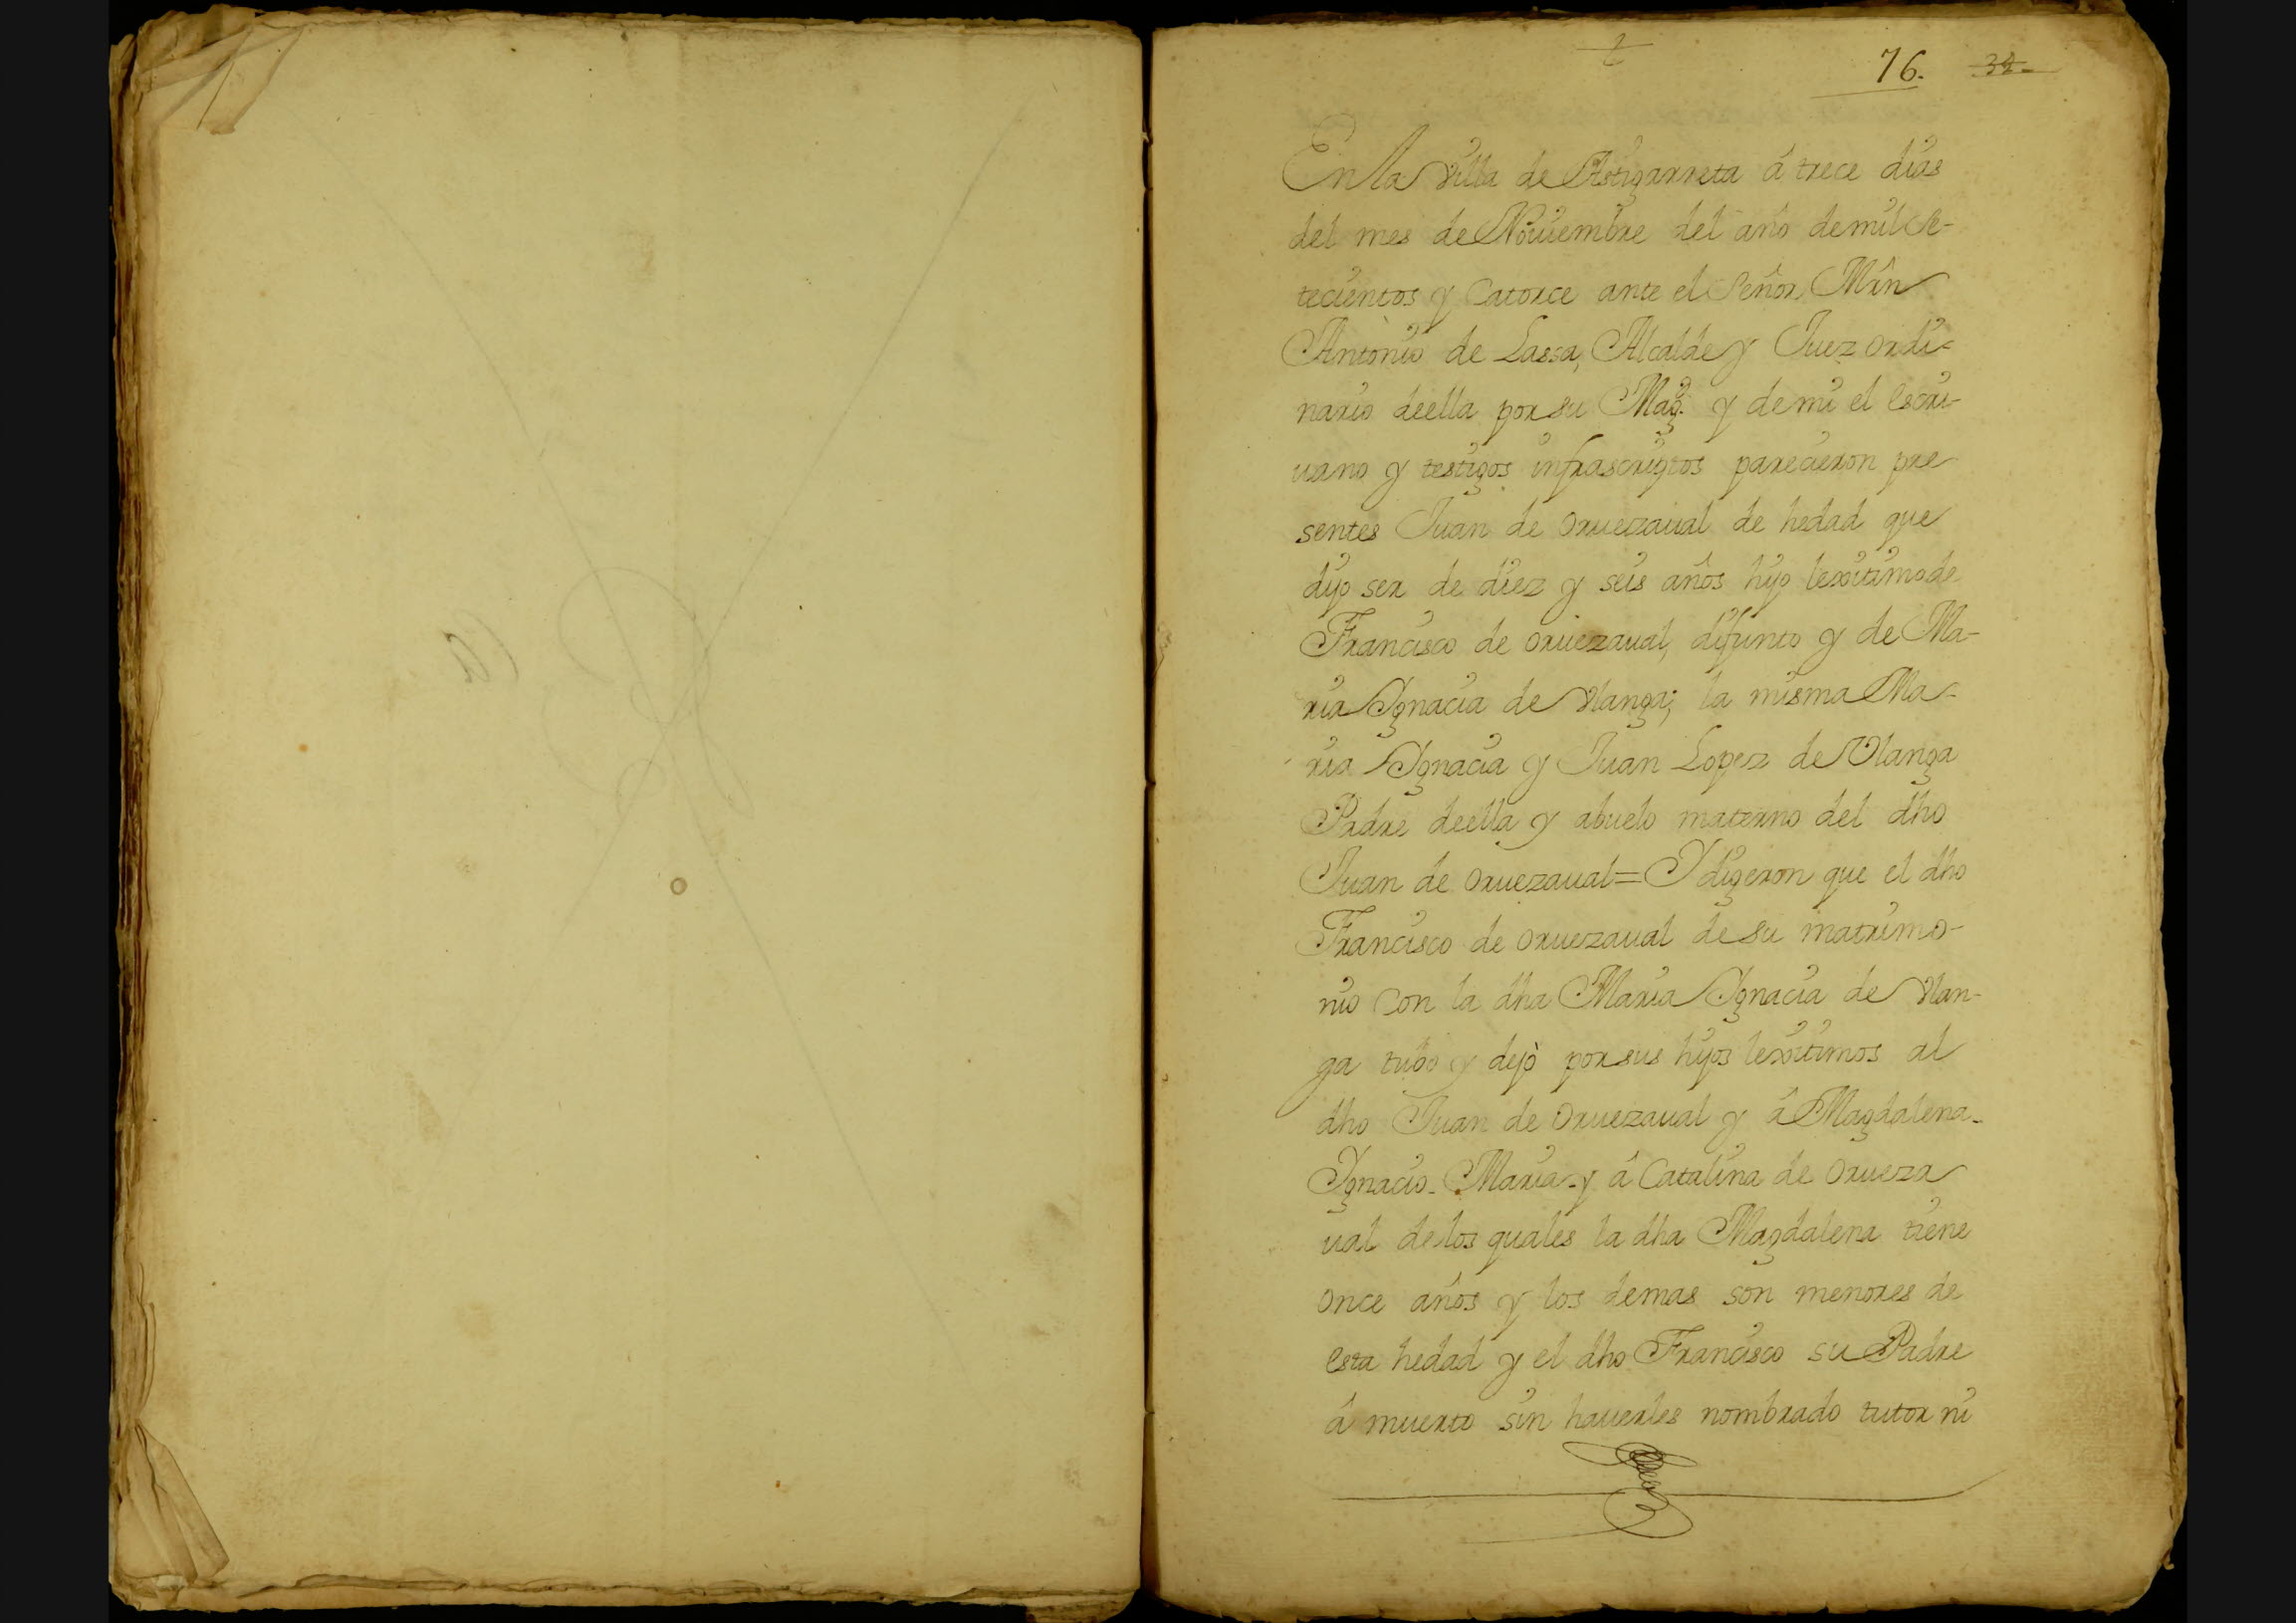 76. 32
En la villa de Astigarreta â trece dias
del mes de Nouiembre del año de mil Se-
tecientos y Catorce ante el Señor Mrn
Antonio de Lassa, Alcalde y Juez ordi-
nario deella por su Mag. y de mi el escri-
uano y testigos infrascriptos parecieron pre
sentes Juan de oruezaual de hedad que
dijo ser de diez y seis años hijo lexitimo de
Francisco de oruezaual, difunto y de Ma-
ria Ygnacia de Vlanga; la misma Ma-
ria Ygnacia y Juan Lopez de Vlanga
Padre deella y abuelo materno del dho
Juan de oruezaual = Y digeron que el dho
Francisco de oruezaual de su matrimo-
nio con la dha Maria Ygnacia de Vlan-
ga tubo y dejò por sus hijos lexitimos al
dho Juan de oruezaual y â Magdalena-
Ygnacio- Maria- y â Catalina de orueza
ual de los quales la dha Magdalena tiene
once años y los demas son menores de
esta hedad y el dho Francisco su Padre
â muerto sin hauerles nombrado tutor ni